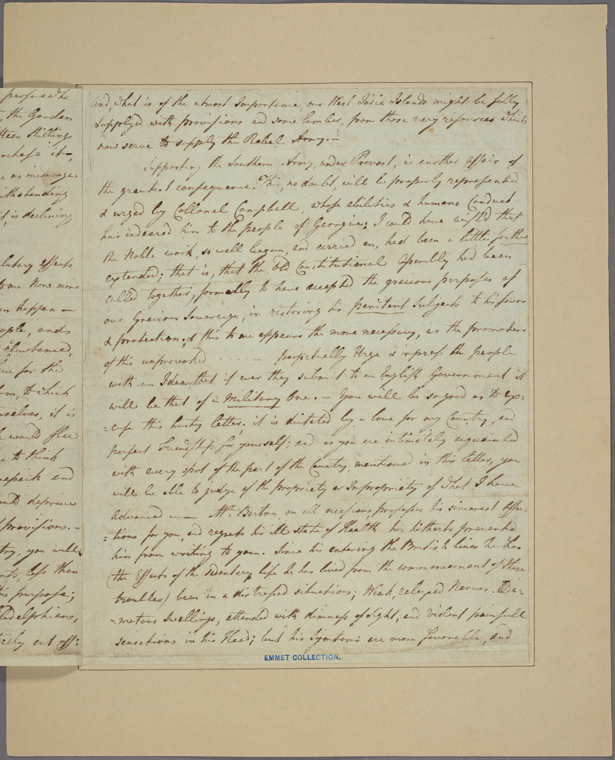 profess who
the Garden
teen Shilling
perhaps it
as no manage
withstanding
is declining
military effects
to me None more
happen —
people, and
Constance,
live for the
to which
ourselves, it is
I would offer
to think
speak and
and deprive
provisions. —
you will
less than
his purpose;
Philadelphians,
entirely cut off:
and, what is of the utmost Importance, our West India Islands might be fully
Supplyed with provisions and some lumber, from those very resources which
now serve to supply the Rebel Army. —
Supporting the Southern Army, under Prevost, is another affair of
the greatest consequence. This, no doubt, will be properly represented
& urged by Collonel Campbell, whose abilities & humane Conduct
has indeered him to the people of Georgia; I could have wished that
the Noble work, so well begun, and carried on, had been a little further
extended; that is, that the Old Constitutional Assembly had been
called together, formally to have accepted the gracious purposes of
our Gracious Sovereign, in restoring his penitent Subjects to his favour
& protection, & this to me appears the more necessary, as the promoters
of this unprovoked perpetually Urge & impress the people
with an Idea that if ever they submit to an English Government it
will be that of a Military One. — You will be so good as to ex-
-cuse this hasty letter. it is dictated by a love for my Country, and
perfect Friendship for yourself: and as you are intimately acquainted
with every spot of the part of the Country mentioned in this letter, you
will be Able to judge of the propriety or Impropriety of what I have
advanced —— Mr. Barton on all occasions professes his sincerest Affec-
-tions for you, and regrets his ill State of Health has hitherto prevented
him from writing to you. Since his entering the British lines he has
(the Effects of the sedentary life he has lived from the commencement of these
troubles) been in a distressed situation; Weak, relaxed Nerves. Oede-
-matous Swellings, attended with dimness of sight, and violent painfull
sensations in his Head; but his Symtoms are more favorable, and
EMMET COLLECTION.